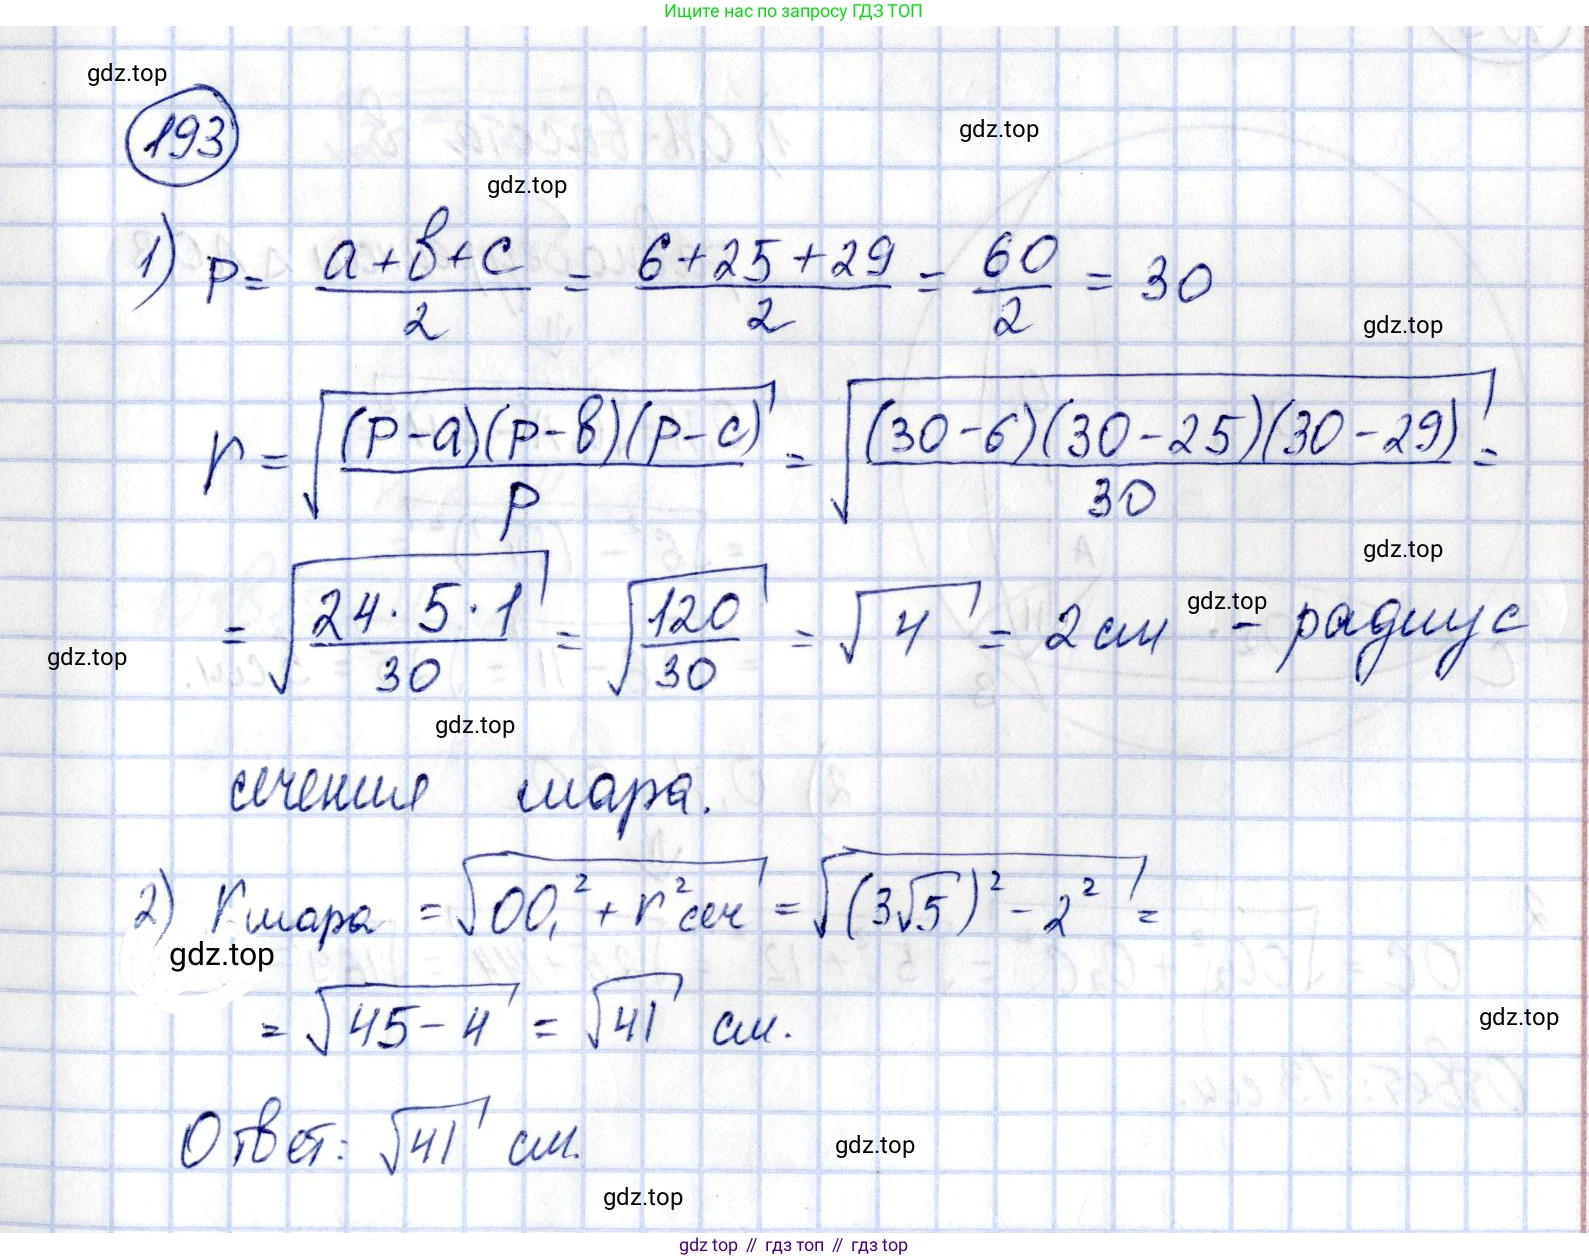 Ищите нас по запросу ГДЗ ТОП
gdz.top
193
gdz.top
gdz.top
1) p = (a+b+c)/2 = (6+25+29)/2 = 60/2 = 30
gdz.top
r = √((p-a)(p-b)(p-c)/p) = √((30-6)(30-25)(30-29)/30) =
gdz.top
= √(24·5·1/30) = √(120/30) = √4 = 2 см - радиус
gdz.top
gdz.top
gdz.top
сечения шара.
2) r шара = √(OO₁² + r² сеч) = √((3√5)² - 2²) =
gdz.top
= √(45-4) = √41 см.
gdz.top
Ответ: √41 см.
gdz.top
gdz.top
gdz top // гдз топ // гдз top